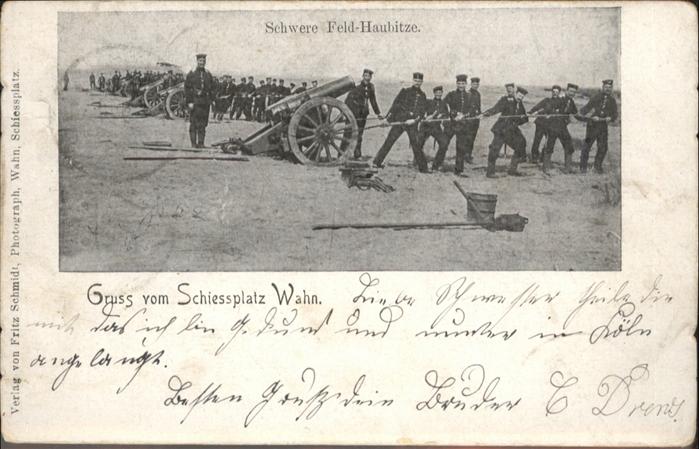 Schwere Feld-Haubitze.
Verlag von Fritz Schmidt, Photograph, Wahn, Schiessplatz.
Gruss vom Schiessplatz Wahn.
Liebe Schwester theile dir
mit das ich bin Gesund und munter in Köln
angelangt.
Besten Gruß dein Bruder C Drews.